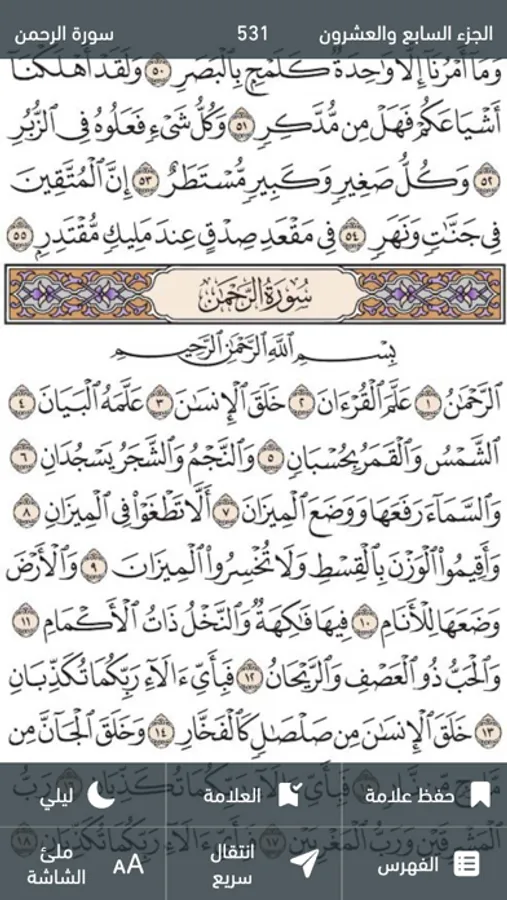 الجزء السابع والعشرون 531 سورة الرحمن
وَمَآ أَمْرُنَآ إِلَّا وَٰحِدَةٌ كَلَمْحٍۭ بِٱلْبَصَرِ ٥٠ وَلَقَدْ أَهْلَكْنَآ
أَشْيَاعَكُمْ فَهَلْ مِن مُّدَّكِرٍ ٥١ وَكُلُّ شَىْءٍ فَعَلُوهُ فِى ٱلزُّبُرِ
٥٢ وَكُلُّ صَغِيرٍ وَكَبِيرٍ مُّسْتَطَرٌ ٥٣ إِنَّ ٱلْمُتَّقِينَ
فِى جَنَّٰتٍ وَنَهَرٍ ٥٤ فِى مَقْعَدِ صِدْقٍ عِندَ مَلِيكٍ مُّقْتَدِرٍۭ ٥٥
سُورَةُ الرَّحْمَٰن
بِسْمِ ٱللَّهِ ٱلرَّحْمَٰنِ ٱلرَّحِيمِ
ٱلرَّحْمَٰنُ ١ عَلَّمَ ٱلْقُرْءَانَ ٢ خَلَقَ ٱلْإِنسَٰنَ ٣ عَلَّمَهُ ٱلْبَيَانَ ٤
ٱلشَّمْسُ وَٱلْقَمَرُ بِحُسْبَانٍ ٥ وَٱلنَّجْمُ وَٱلشَّجَرُ يَسْجُدَانِ ٦
وَٱلسَّمَآءَ رَفَعَهَا وَوَضَعَ ٱلْمِيزَانَ ٧ أَلَّا تَطْغَوْا۟ فِى ٱلْمِيزَانِ ٨
وَأَقِيمُوا۟ ٱلْوَزْنَ بِٱلْقِسْطِ وَلَا تُخْسِرُوا۟ ٱلْمِيزَانَ ٩ وَٱلْأَرْضَ
وَضَعَهَا لِلْأَنَامِ ١٠ فِيهَا فَٰكِهَةٌ وَٱلنَّخْلُ ذَاتُ ٱلْأَكْمَامِ ١١
وَٱلْحَبُّ ذُو ٱلْعَصْفِ وَٱلرَّيْحَانُ ١٢ فَبِأَىِّ ءَالَآءِ رَبِّكُمَا تُكَذِّبَانِ
١٣ خَلَقَ ٱلْإِنسَٰنَ مِن صَلْصَٰلٍ كَٱلْفَخَّارِ ١٤ وَخَلَقَ ٱلْجَآنَّ مِن
حفظ علامة العلامة ليلي
ٱلْمَشْرِقَيْنِ وَرَبُّ ٱلْمَغْرِبَيْنِ ١٧ فَبِأَىِّ ءَالَآءِ رَبِّكُمَا تُكَذِّبَانِ ١٨
الفهرس انتقال سريع ملئ الشاشة